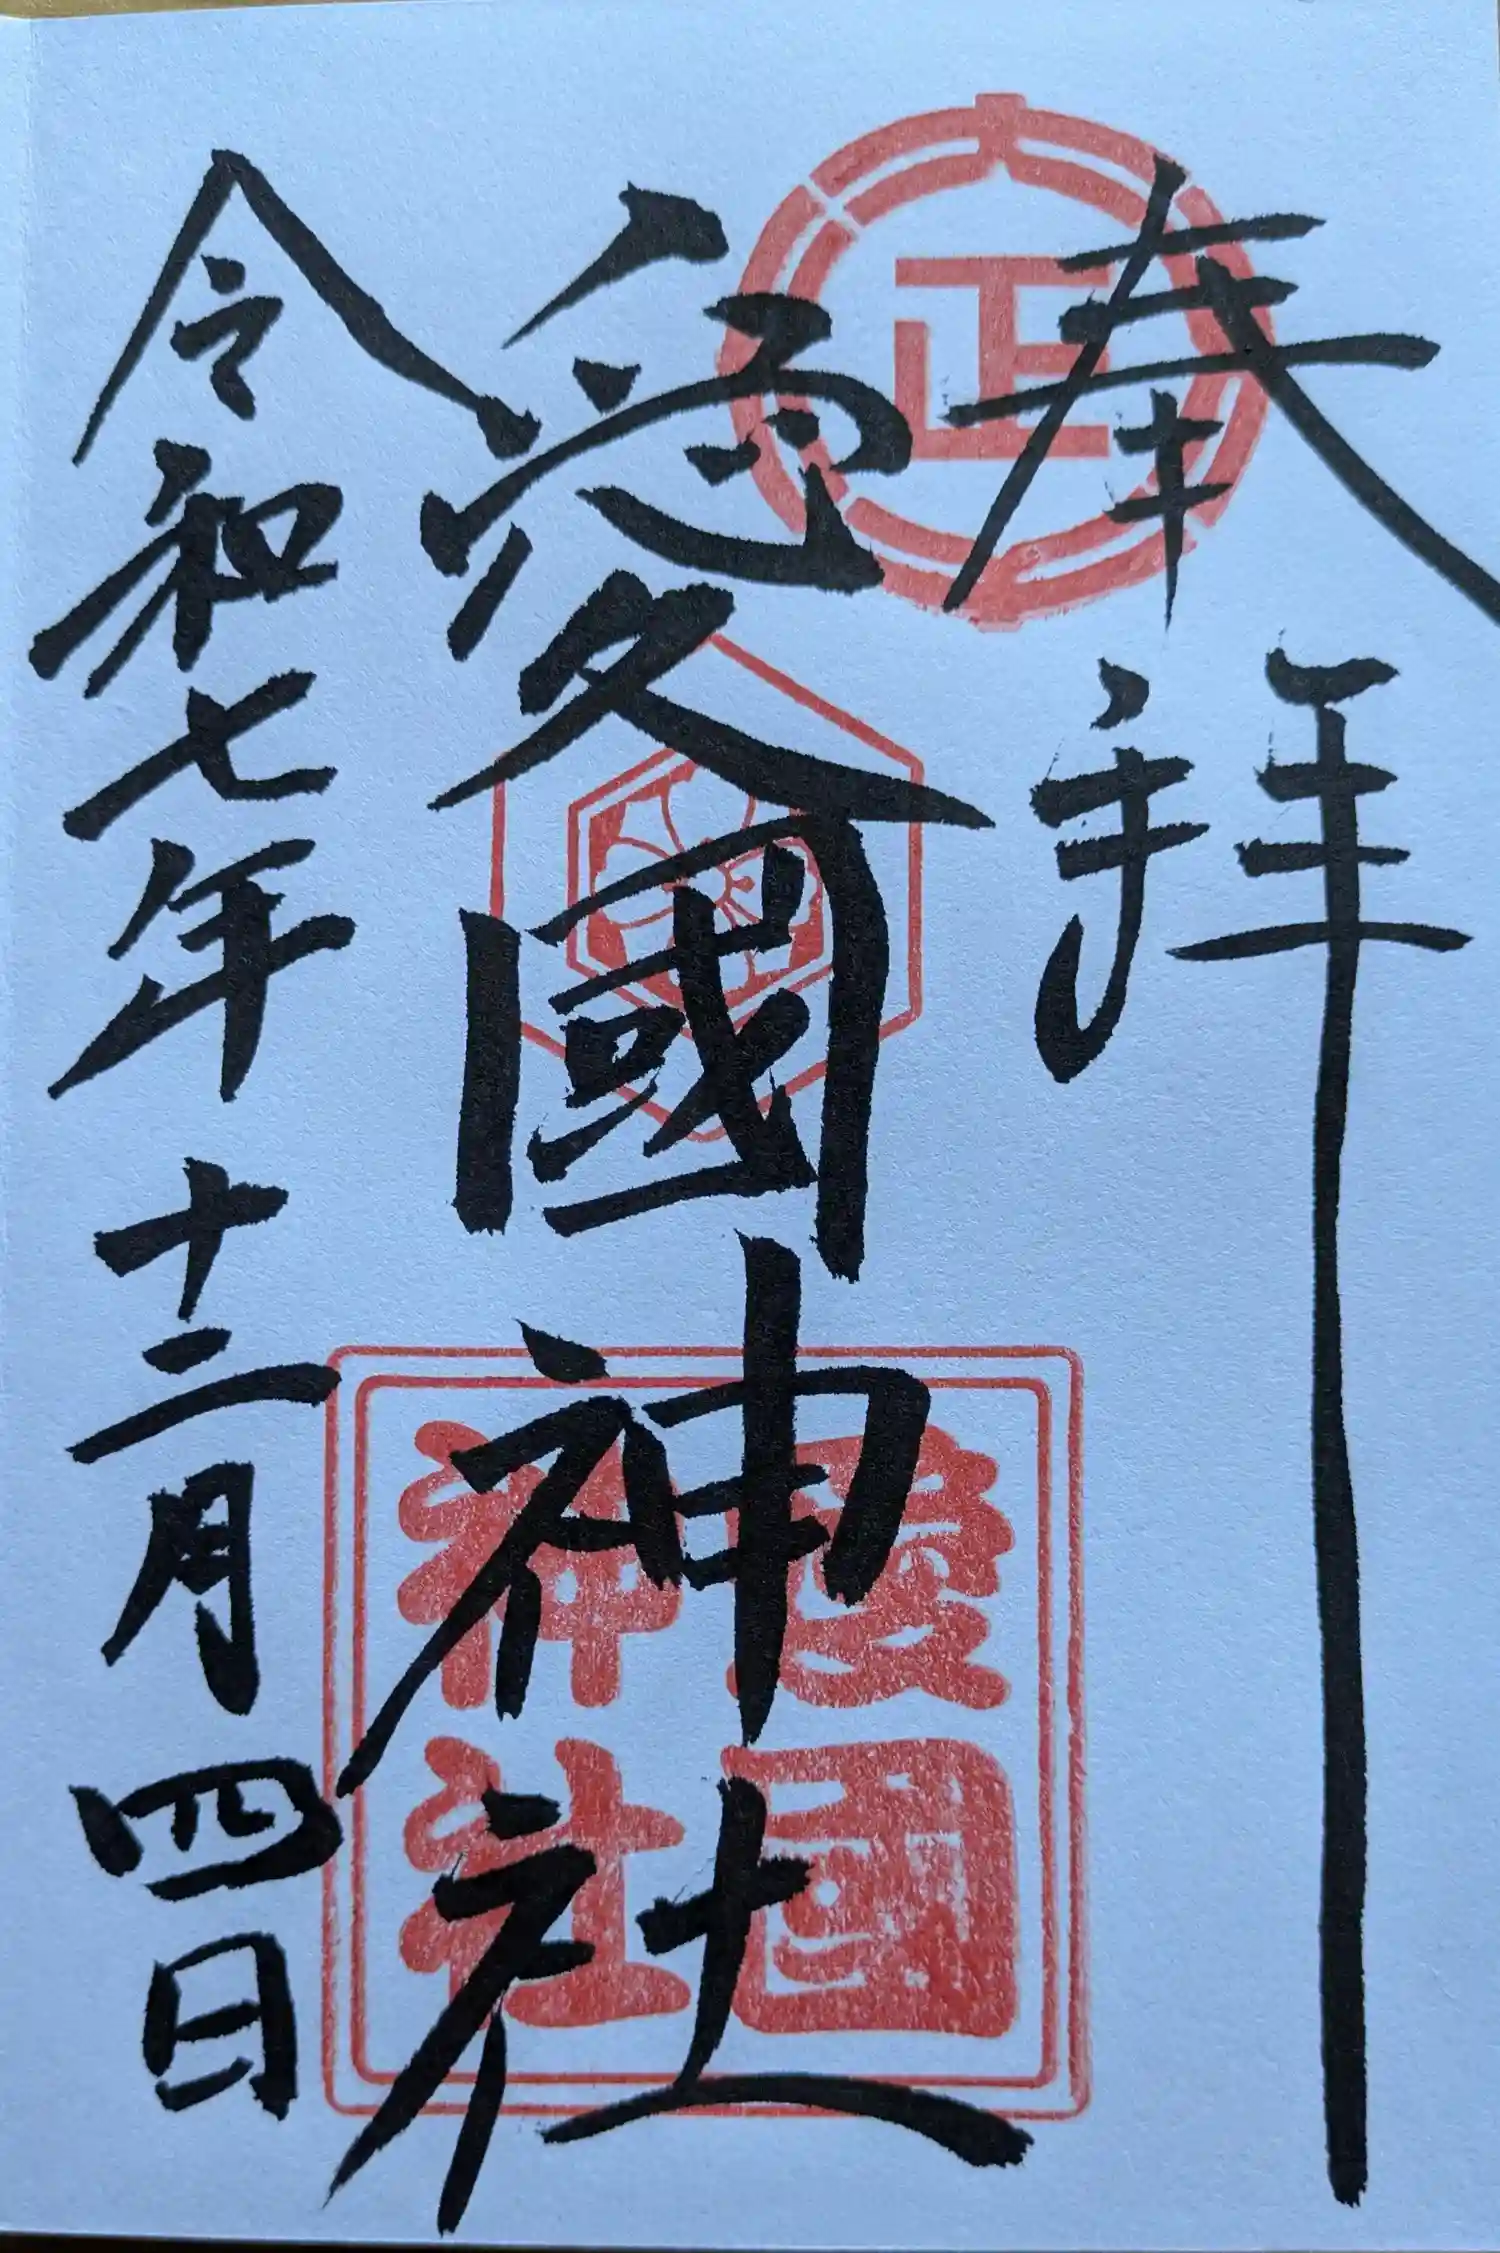 奉拝
正
愛國神社
愛国
神社
令和七年十二月四日